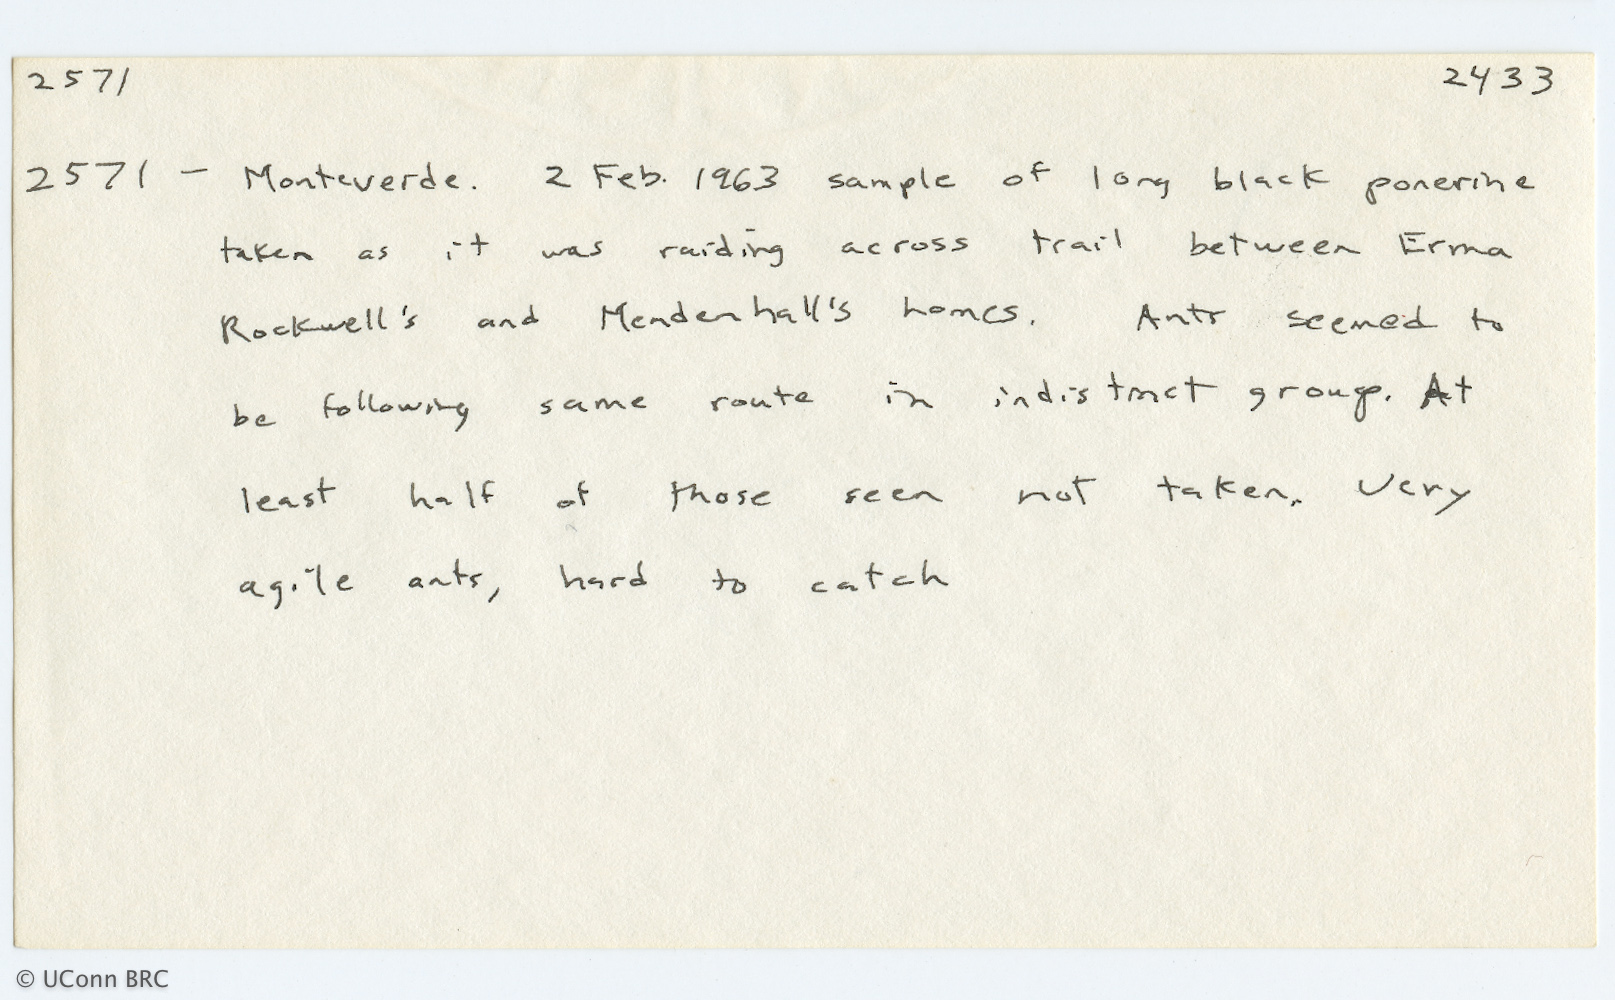 2571 2433
2571 – Monteverde. 2 Feb. 1963 sample of long black ponerine
taken as it was raiding across trail between Erma
Rockwell's and Mendenhall's homes. Ants seemed to
be following same route in indistinct group. At
least half of those seen not taken. Very
agile ants, hard to catch
© UConn BRC